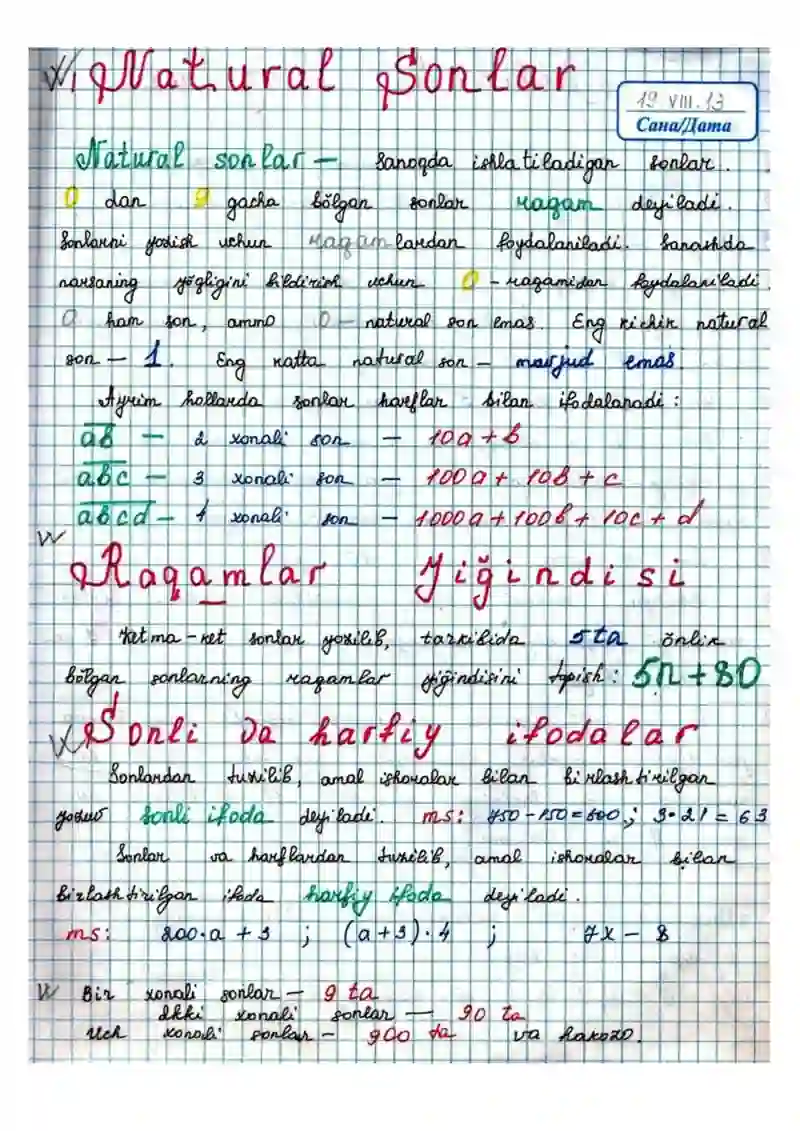 Natural Sonlar
19 VIII.13
Сана/Дата
Natural sonlar — sanoqda ishlatiladigan sonlar.
0 dan 9 gacha bŏlgan sonlar raqam deyiladi.
Sonlarni yozish uchun raqamlardan foydalaniladi. Sanashda
narsaning yŏqligini bildirish uchun 0 - raqamidan foydalaniladi.
0 ham son, ammo 0 — natural son emas. Eng kichik natural
son — 1. Eng katta natural son — mavjud emas.
Ayrim hollarda sonlar harflar bilan ifodalanadi:
ab — 2 xonali son — 10a + b
abc — 3 xonali son — 100a + 10b + c
abcd — 4 xonali son — 1000a + 100b + 10c + d
Raqamlar Yiğindisi
Ketma-ket sonlar yozilib, tarkibida 5 ta ŏnlik
bŏlgan sonlarning raqamlar yiğindisini topish: 5n + 80
Sonli va harfiy ifodalar
Sonlardan tuzilib, amal ishoralar bilan birlashtirilgan
yozuv sonli ifoda deyiladi. ms: 750 - 150 = 600; 3·21 = 63
Sonlar va harflardan tuzilib, amal ishoralar bilan
birlashtirilgan ifoda harfiy ifoda deyiladi.
ms: 200·a + 3 ; (a+3)·4 ; 7x - 8
Bir xonali sonlar — 9 ta
Ikki xonali sonlar — 90 ta
Uch xonali sonlar — 900 ta va hakozo.